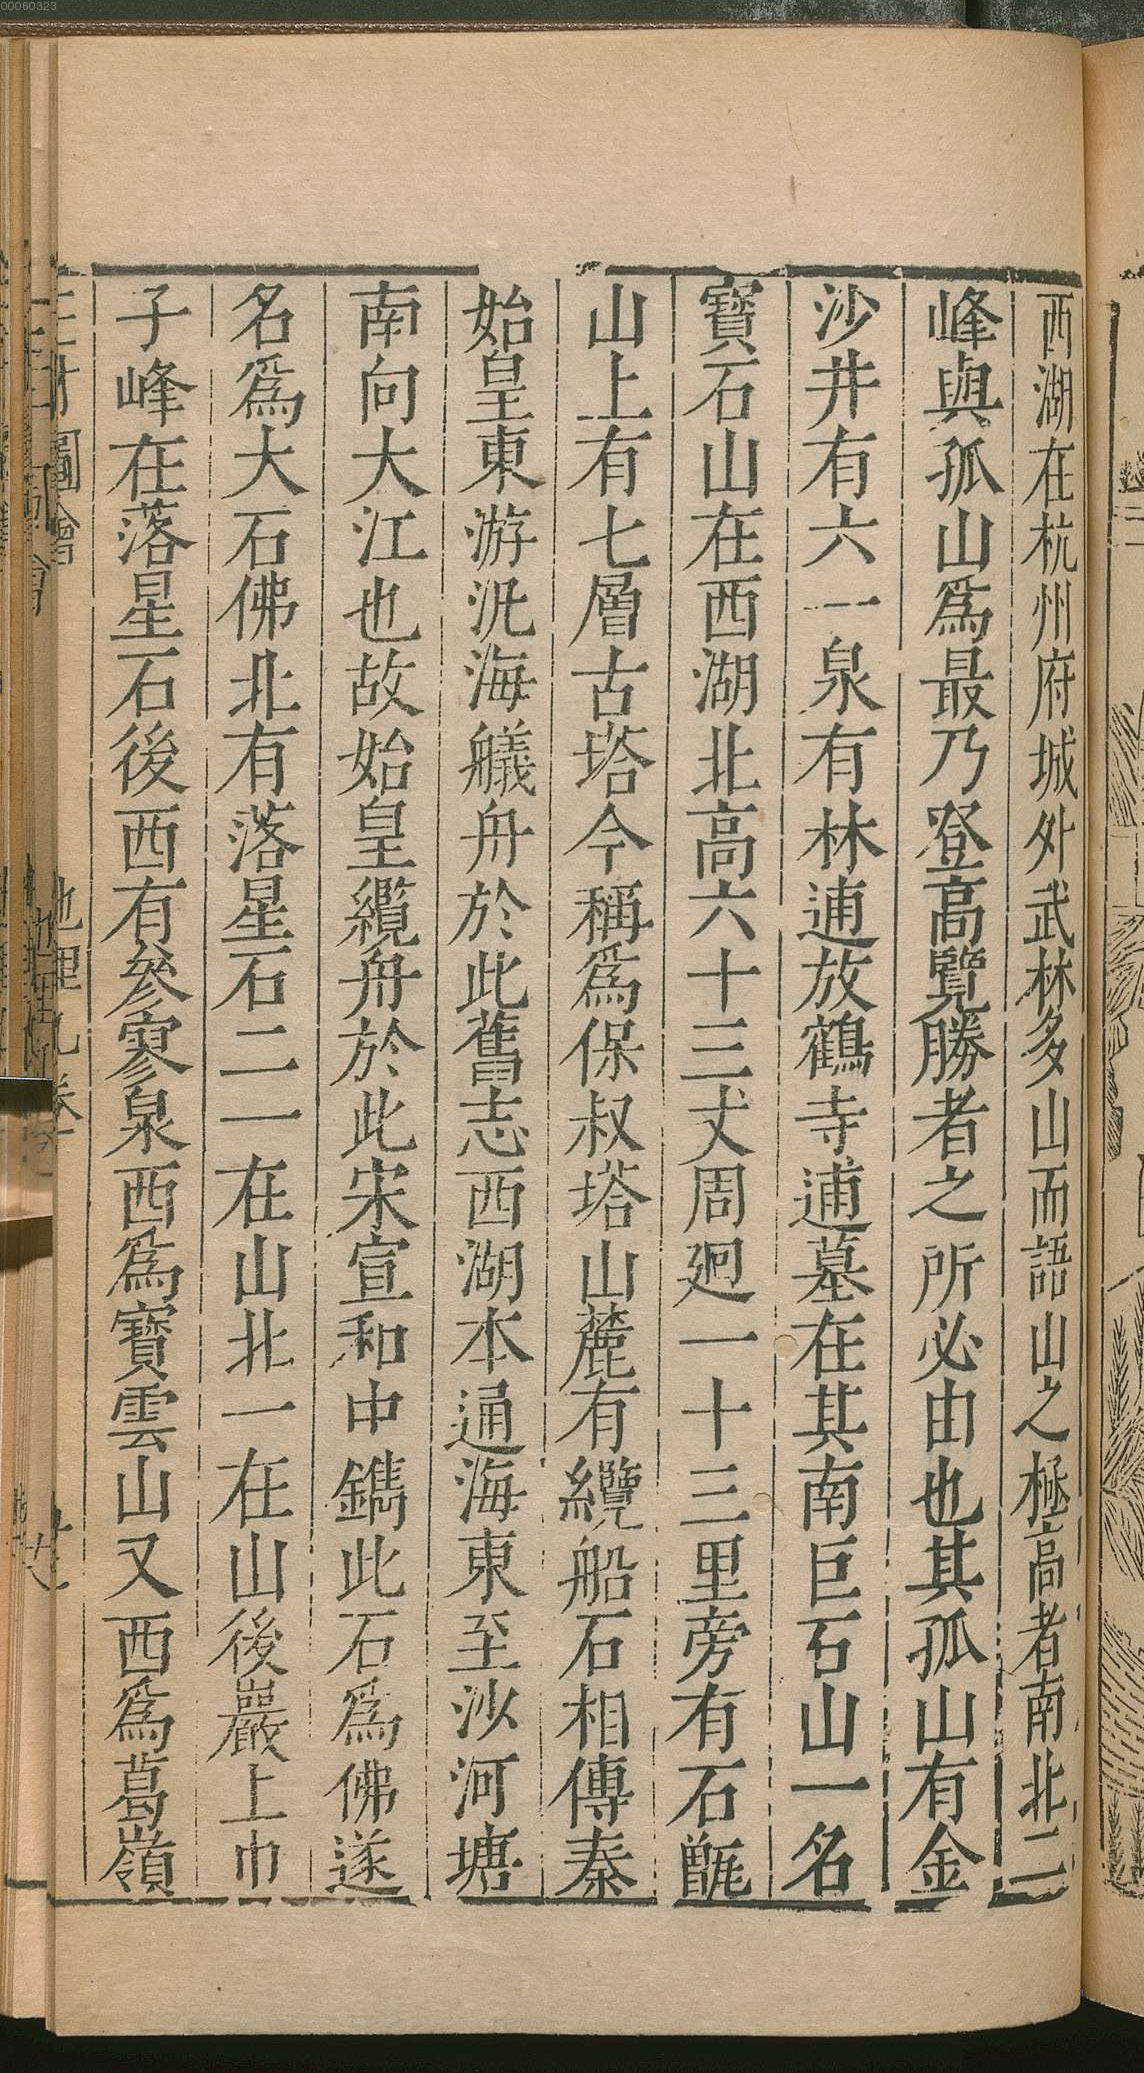 00060323
西湖在杭州府城外武林多山而語山之極高者南北二
峰與孤山爲最乃登高覽勝者之所必由也其孤山有金
沙井有六一泉有林逋放鶴寺逋墓在其南巨石山一名
寶石山在西湖北高六十三丈周廻一十三里旁有石甑
山上有七層古塔今稱爲保叔塔山麓有纜船石相傳秦
始皇東游汎海艤舟於此舊志西湖本通海東至沙河塘
南向大江也故始皇纜舟於此宋宣和中鐫此石爲佛遂
名爲大石佛北有落星石二一在山北一在山後巖上巾
子峰在落星石後西有參寥泉西爲寶雲山又西爲葛嶺
圖會
地理九卷